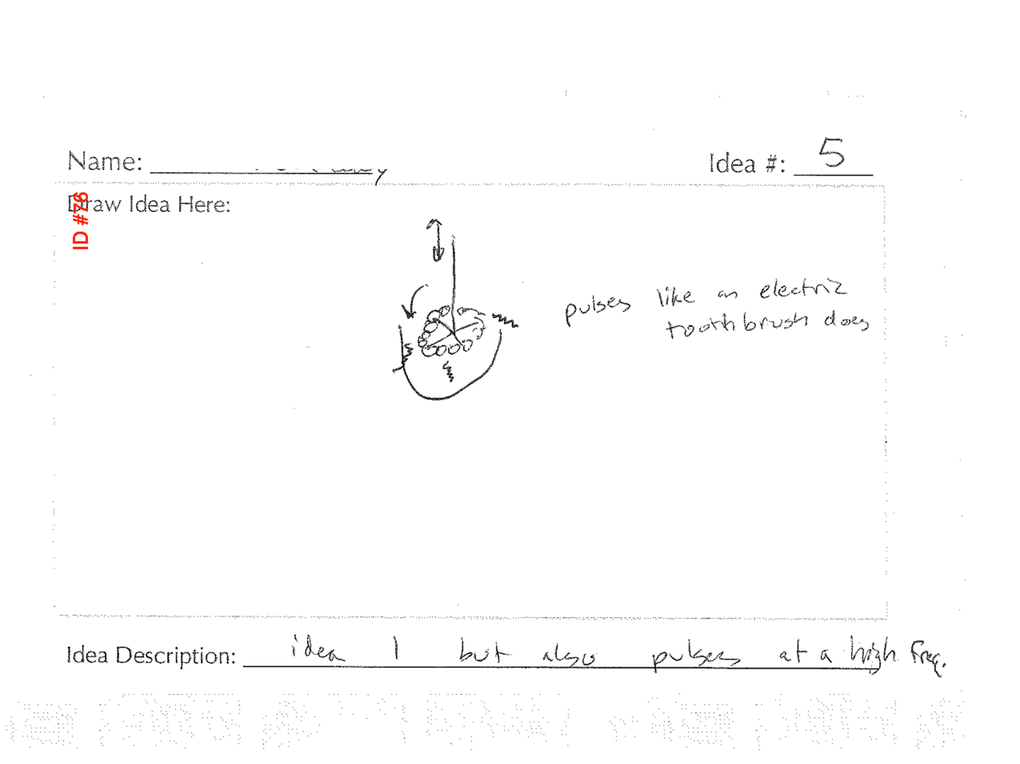 Name:
Idea #: 5
ID #76
Draw Idea Here:
pulses like an electric
toothbrush does
Idea Description: idea 1 but also pulses at a high freq.